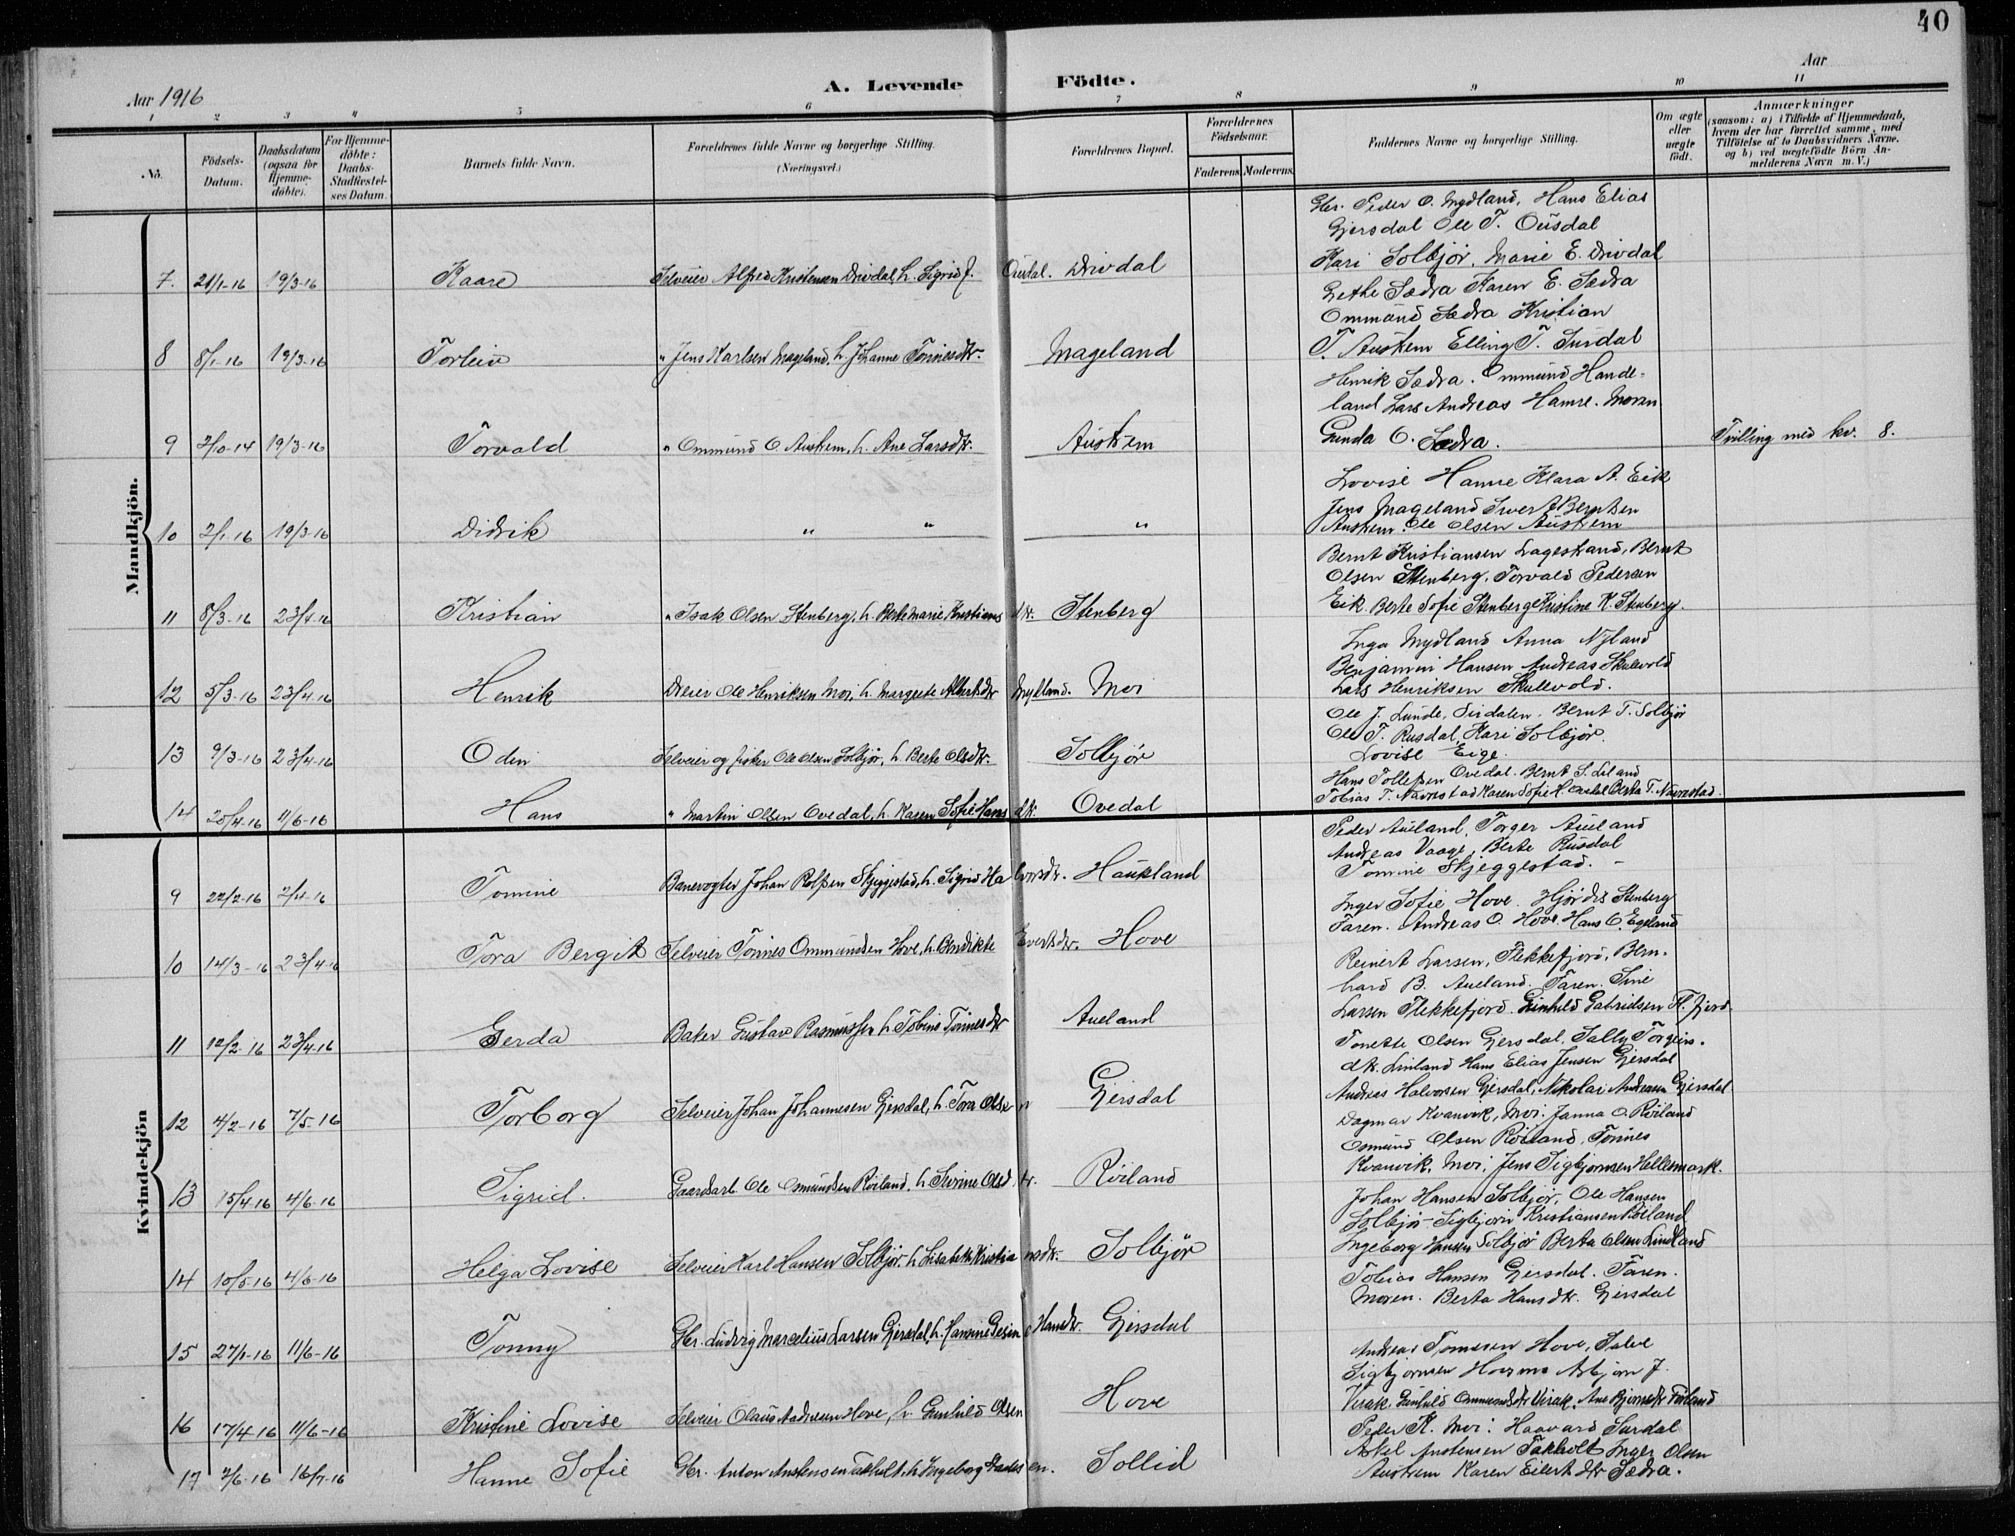 40
Aar 1916
A. Levende Födte.
Aar
1 2 3 4 5 6 7 8 9 10 11
No.
Födsels-Datum.
Daabsdatum (ogsaa for Hjemme-döbte).
For Hjemme-döbte: Daabs-Stadfæstel-ses Datum.
Barnets fulde Navn.
Forældrenes fulde Navne og borgerlige Stilling. (Næringsvei.)
Forældrenes Bopæl.
Forældrenes Födselsaar.
Faderens. Moderens.
Faddernes Navne og borgerlige Stilling.
Om ægte eller uægte födt.
Anmærkninger (saasom: a) i Tilfælde af Hjemmedaab, hvem der har forrettet samme, med Tilföielse af to Daabsvidners Navne. og b) ved uægtefödte Börn An-melderens Navn m. V.)
Mandkjön.
Gbr. Peder O. Mydland, Hans Elias
Gjersdal Ole T. Ousdal
7. 21/1-16 19/3-16 Kaare Selveier Alfred Kristensen Drivdal, h. Sigrid J. Ousdal. Drivdal
Kari Solbjør, Marie E. Drivdal
Grethe Sædra Karen E. Sædra
Ommund Sædra Kristian
8 8/1-16 19/3-16 Torleiv " Jens Karlsen Mageland, h. Johanne Tønnesdtr. Mageland
T. Austrem Elling T. Surdal
Henrik Sædra. Ommund Hande-
land Lars Andreas Hamre. Moren
9 2/10-14 19/3-16 Torvald " Ommund O. Austrem, h. Ane Larsdtr. Austrem
Gunda O. Sædra. Tvilling med kv. 8.
Lovise Hamre Klara A. Eik
Jens Mageland Sivert Berntsen
10 2/1-16 19/3-16 Didrik " " "
Austrem. Ole Olsen Austrem
Bernt Kristiansen Lagestrand, Bernt
Olsen Stenberg, Torvald Pedersen
11 8/3-16 23/4-16 Kristian " Isak Olsen Stenberg, h. Berte Marie Kristiansdtr. Stenberg
Eik. Berte Sofie Stenberg Kristine K. Stenberg.
Inga Mydland Anna Nyland
Benjamin Hansen Andreas Skulevold
12 5/3-16 23/4-16 Henrik Dreier Ole Henriksen Moi, h. Margrete Albertsdtr Mydland. Moi
Lars Henriksen Skulevold.
Ole J. Lunde, Sirdalen. Bernt T. Solbjør
13 9/3-16 23/4-16 Odin Selveier og fisker Ole Olsen Solbjør, h. Berte Olsdtr. Solbjør
Ole T. Rusdal, Kari Solbjør.
Lovise Eige.
Hans Tollefsen Ovedal. Bernt S. Liland
14 25/4-16 11/6-16 Hans " Martin Olsen Ovedal, h. Karen Sofie Hansdtr. Ovedal
Tobias T. Navrestad Karen Sofie H. Ovedal Berta T. Navrestad.
Kvindekjön
Peder Aueland, Torger Aueland
Andreas Vaage, Berte Rusdal
9 22/2-16 2/4-16 Tomine Banevogter Johan Rolfsen Skjeggestad, h. Sigrid Halvorsdtr. Haukland
Tomine Skjeggestad.
Inger Sofie Hove. Hjørdis Stenberg
10 14/3-16 23/4-16 Tora Bergit Selveier Tønnes Ommundsen Hove, h. Bendikte Evertsdtr. Hove
Faren. Andreas O. Hove. Hans O. Egeland
Reinert Larsen, Flekkefjord, Bern-
hard B. Aueland. Faren. Sine
11 12/2-16 23/4-16 Gerda Baker Gustav Rasmussen h. Tobine Tønnesdtr Aueland
Larsen Flekkefjord Gunhild Gabrielsen Fl. fjord.
Tonette Olsen Gjersdal, Sally Torgeirs.
dtr. Linland Hans Elias Jensen Gjersdal
12 4/2-16 7/5-16 Torborg Selveier Johan Johannesen Gjersdal, h. Tora Olsen Gjersdal
Andreas Halvorsen Gjersdal, Nikolai Andersen Gjersdal
Dagmar Kvanvik, Moi. Janna O. Röiland
Osmund Olsen Röiland, Tønnes
13 15/4-16 4/6-16 Sigrid. Gaardarb. Ole Osmundsen Röiland, h. Sivrine Olsdtr. Röiland
Kvanvik, Moi, Jens Sigbjørnsen Hellesmark.
Johan Hansen Solbjør, Ole Hansen
Solbjør Sigbjørn Kristiansen Röiland
14 10/5-16 4/6-16 Helga Lovise Selveier Karl Hansen Solbjør, h. Lisabeth Kristiansdtr. Solbjør
Ingeborg Hansen Solbjør Berta Olsen Lindland
Tobias Hansen Gjersdal. Faren.
Moren. Berta Hansdtr. Gjersdal
15 27/1-16 11/6-16 Tonny Gbr. Ludvig Marcelius Larsen Gjersdal, h. Hansine Gesine Hansdtr. Gjersdal
Andreas Tønnesen Hove, Salve
Sigbjørnsen Asbjørn J.
16 17/4-16 11/6-16 Kristine Lovise Selveier Olaus Andresen Hove, h. Gunhild Olsen Hove
Virak. Gunhild Ommundsdtr Virak, Ane Bjørnsdtr
Peder K. Moi: Haavard Surdal
Aksel Anstensen Fakholt Inger Olsen
17 2/6-16 16/7-16 Hanne Sofie Gbr. Anton Anstensen Fakholt, h. Ingeborg Sollid
Austrem Karen Eilertdtr Sædra.